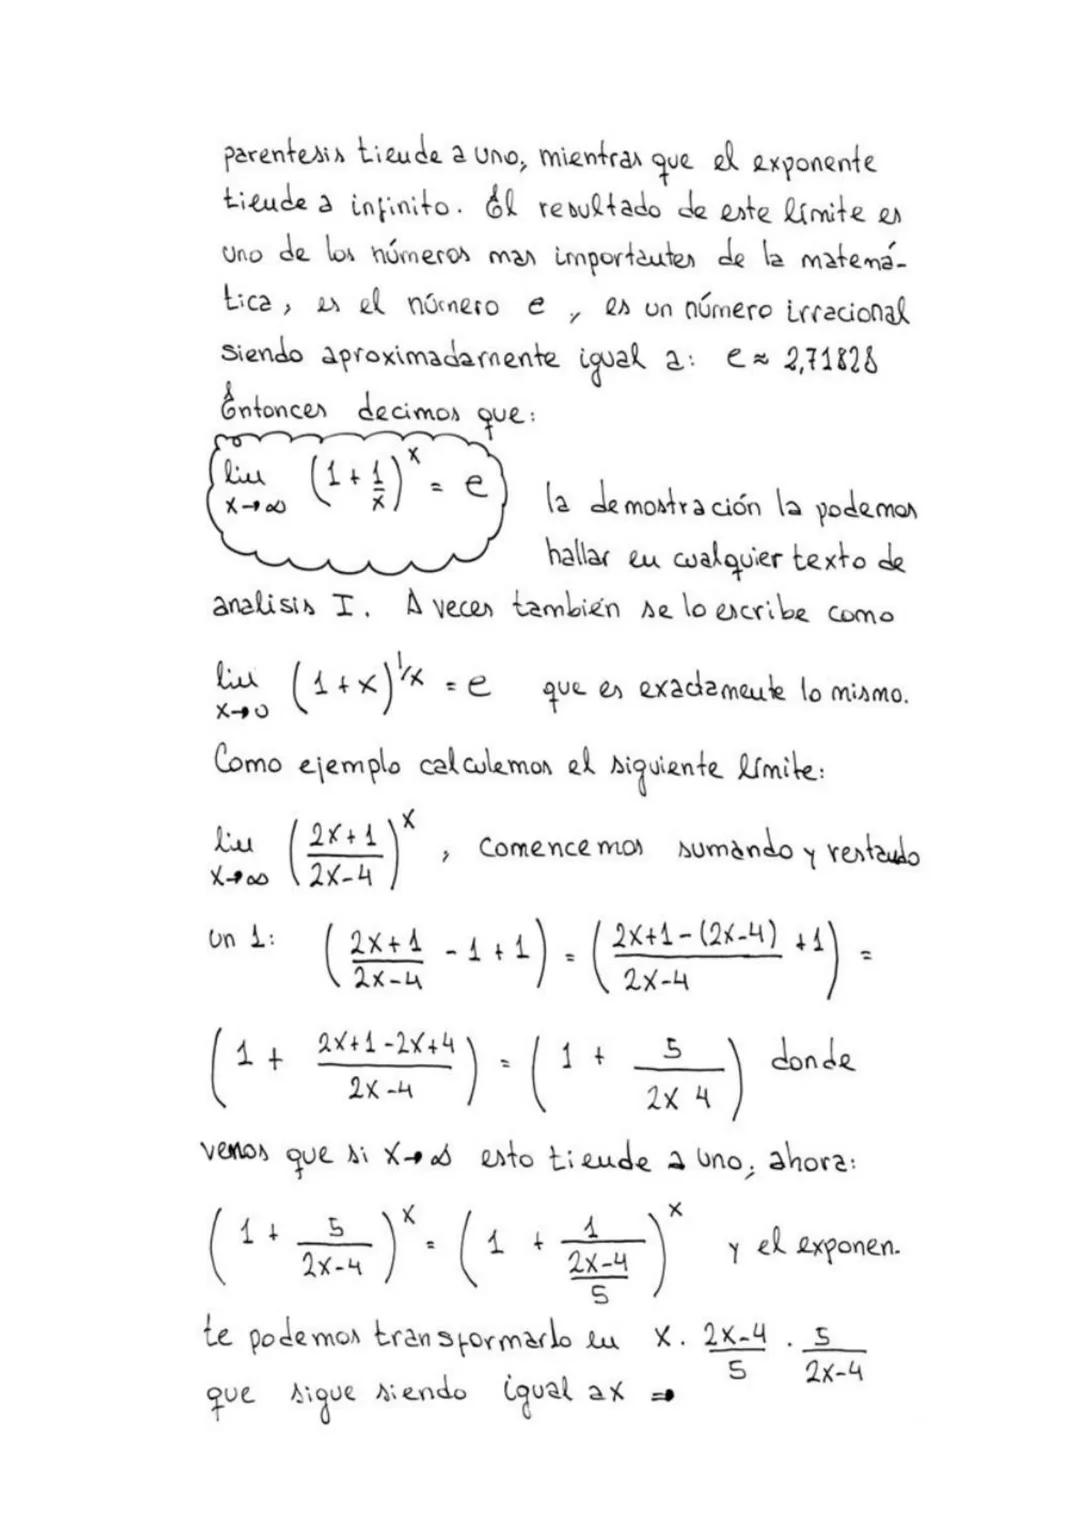 parentesis tiende a uno, mientras que el exponente
tiende a infinito. El resultado de este límite es
uno de los números mas importantes de la matemá-
tica, es el número e, es un número irracional
siendo aproximadamente igual a: e ≈ 2,71828
Entonces decimos que:
lim x→∞ (1 + 1/x)^x = e
la demostración la podemos
hallar en cualquier texto de
analisis I. A veces también se lo escribe como
lim x→0 (1+x)^1/x = e que es exactamente lo mismo.
Como ejemplo calculemos el siguiente límite:
lim x→∞ ((2x+1)/(2x-4))^x, comencemos sumando y restando
un 1: ((2x+1)/(2x-4) - 1 + 1) = ((2x+1-(2x-4))/(2x-4) + 1) =
(1 + (2x+1-2x+4)/(2x-4)) = (1 + 5/(2x 4)) donde
vemos que si x→∞ esto tiende a uno, ahora:
(1 + 5/(2x-4))^x = (1 + 1/((2x-4)/5))^x y el exponen-
te podemos transformarlo en x · (2x-4)/5 · 5/(2x-4)
que sigue siendo igual a x ⇒